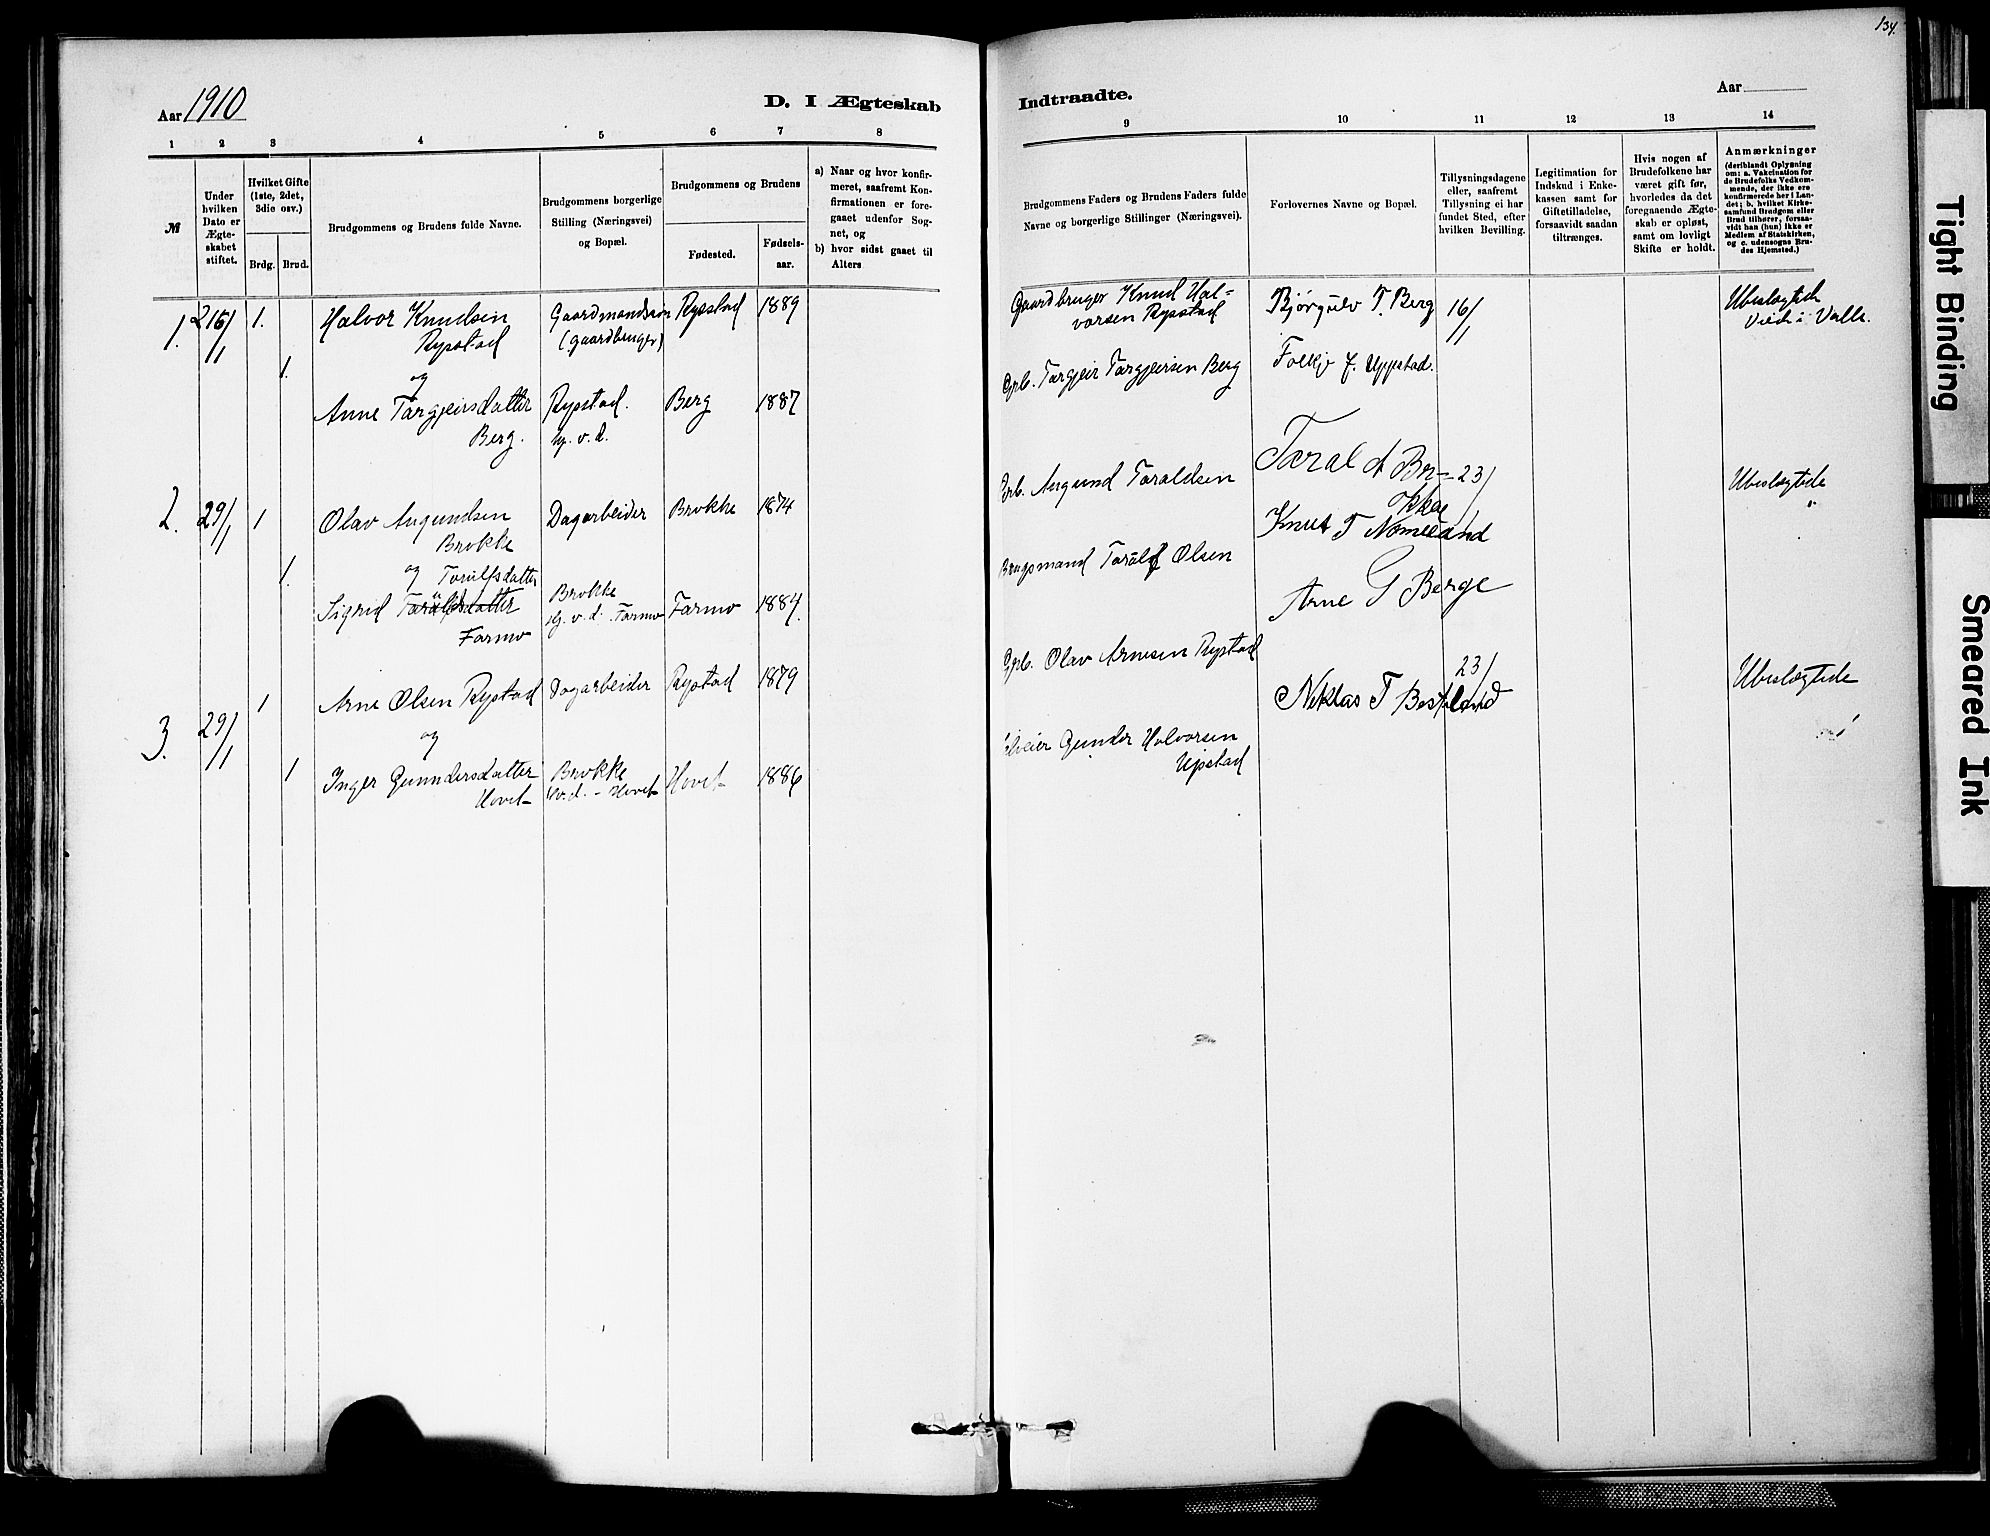 134.
Aar 1910
D. I Ægteskab
1 2 3 4 5 6 7 8
№
Under hvilken Dato er Ægteskabet stiftet.
Hvilket Gifte (1ste, 2det, 3die osv.)
Brdg. Brud.
Brudgommens og Brudens fulde Navne.
Brudgommens borgerlige Stilling (Næringsvei) og Bopæl.
Brudgommens og Brudens
Fødested.
Fødselsaar.
a) Naar og hvor konfirmeret, saafremt Konfirmationen er foregaaet udenfor Sognet, og
b) hvor sidst gaaet til Alters
1. 1. Halvor Knudsen Gaardmandssøn Rysstad 1889
Rysstad (gaardbruger)
1. og
Anne Targjeirsdatter Rysstad. Berg 1887
Berg.
2. 29/1 1 Olav Augundsen Dagarbeider Brokke 1874
Brokke
1. og Torulfsdatter
Sigrid Brokke Farmo 1884.
Farmo
3. 29/1 1 Arne Olsen Rystad Dagarbeider Rystad 1879
og
1 Inger Gunndersdatter Brokke Hovet 1886
Hovet
Indtraadte.
Aar
9 10 11 12 13 14
Brudgommens Faders og Brudens Faders fulde Navne og borgerlige Stillinger (Næringsvei).
Forlovernes Navne og Bopæl.
Tillysningsdagene eller, saafremt Tillysning ei har fundet Sted, efter hvilken Bevilling.
Legitimation for Indskud i Enkekassen samt for Giftetilladelse, forsaavidt saadan tiltrænges.
Hvis nogen af Brudefolkene har været gift før, hvorledes da det foregaaende Ægteskab er opløst, samt om lovligt Skifte er holdt.
Anmærkninger
(deriblandt Oplysning om: a. Vakcination for de Brudefolks Vedkommende, der ikke ere konfirmerede her i Landet; b. hvilket Kirkesamfund Brudgom eller Brud tilhører, forsaavidt han (hun) ikke er Medlem af Statskirken, og c. udensogns Brudes Hjemsted.)
Gaardbruger Knud Hal= Bjørgulv T. Berg 16/1 Ubeslægtede
vorsen Rysstad Viede i Valle.
Grb. Targjeir Targjeirsen Berg Uppstad.
Grb. Augund Taraldsen Taral A Bro= 23/1 Ubeslægtede
kke
Knut T Nomeland
Brugsmand Olsen
Arne G Berge
Grb. Olav Arnesen Rystad 23/ Ubeslægtede
Niklas T Besteland
Gunder Halvorsen
Upstad
Tight Binding
Smeared Ink